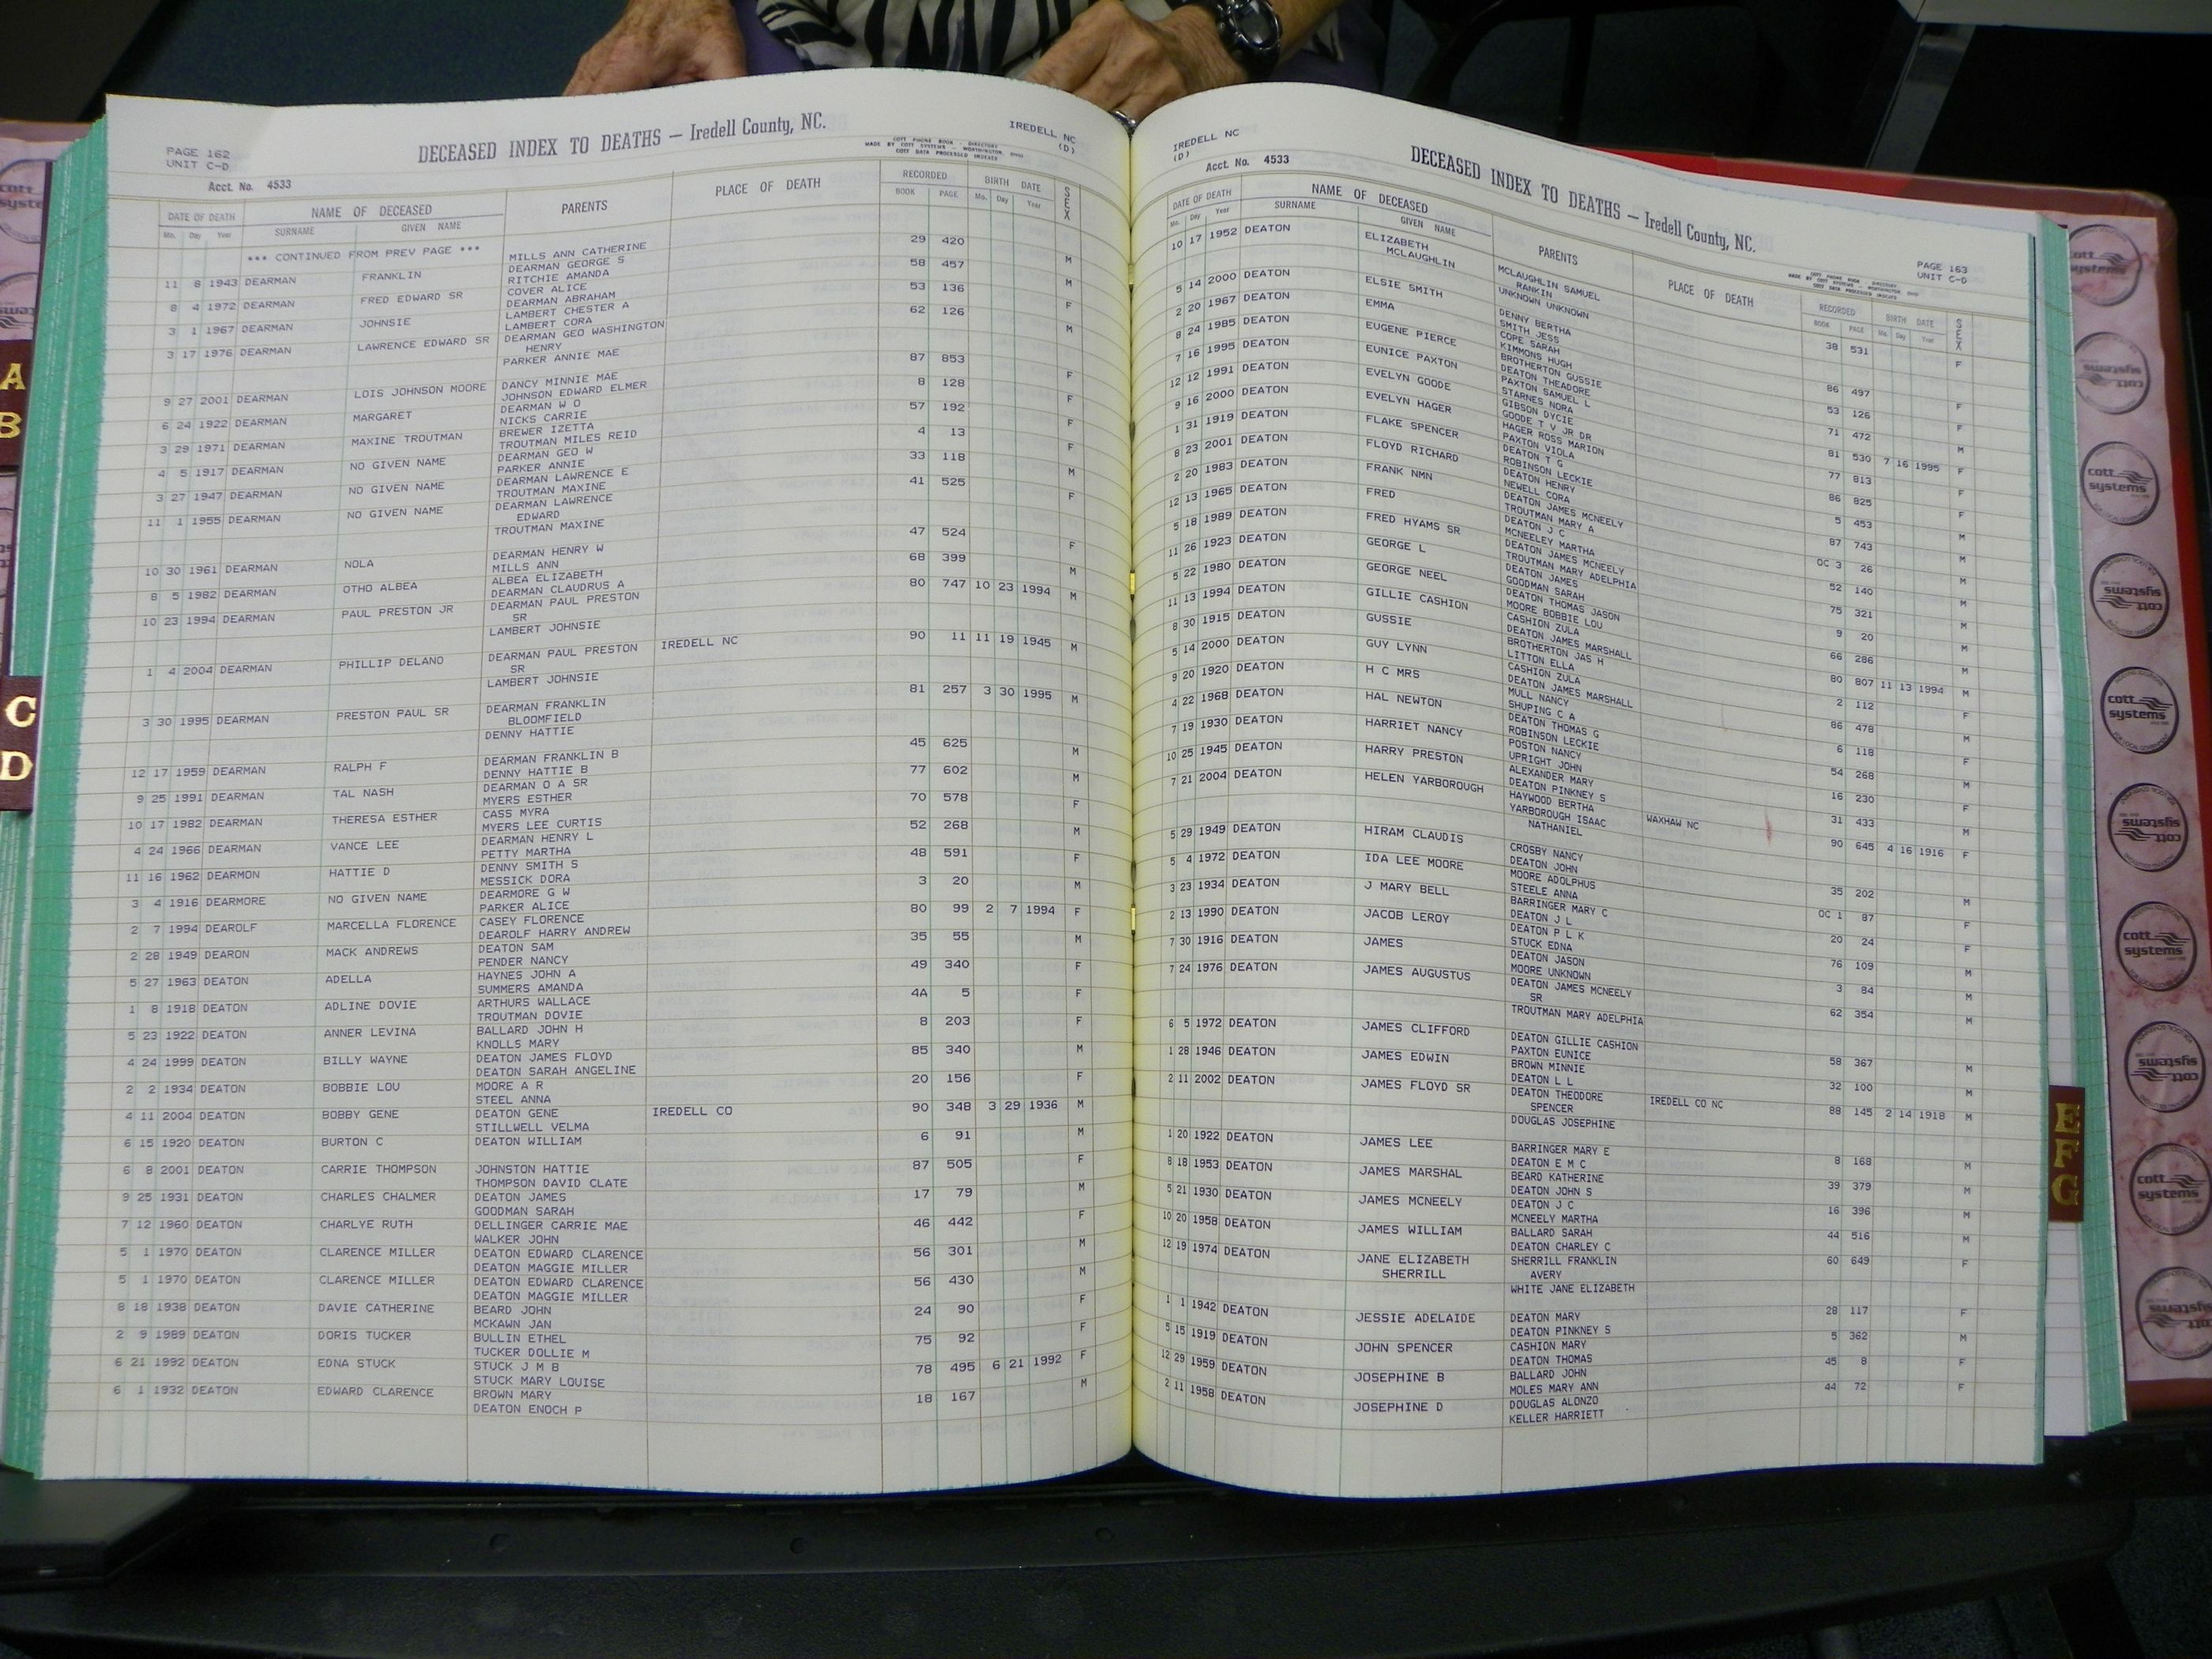 PAGE 162
UNIT C-D
DECEASED INDEX TO DEATHS — Iredell County, NC.
IREDELL NC
(D)
Acct. No. 4533
MADE BY COTT SYSTEMS
COTT DATA PROCESSED INDEXES
DATE OF DEATH NAME OF DECEASED PARENTS PLACE OF DEATH RECORDED BIRTH DATE SEX
Mo. Day Year SURNAME GIVEN NAME BOOK PAGE Mo. Day Year
*** CONTINUED FROM PREV PAGE *** MILLS ANN CATHERINE
11 8 1943 DEARMAN FRANKLIN DEARMAN GEORGE S 29 420 M
RITCHIE AMANDA
8 4 1972 DEARMAN FRED EDWARD SR COVER ALICE 58 457 M
DEARMAN ABRAHAM
3 1 1967 DEARMAN JOHNSIE LAMBERT CHESTER A 53 136 F
LAMBERT CORA
3 17 1976 DEARMAN LAWRENCE EDWARD SR DEARMAN GEO WASHINGTON 62 126 M
HENRY
PARKER ANNIE MAE
9 27 2001 DEARMAN LOIS JOHNSON MOORE DANCY MINNIE MAE 87 853 F
JOHNSON EDWARD ELMER
6 24 1922 DEARMAN MARGARET DEARMAN W O 8 128 F
NICKS CARRIE
3 29 1971 DEARMAN MAXINE TROUTMAN BREWER IZETTA 57 192 F
TROUTMAN MILES REID
4 5 1917 DEARMAN NO GIVEN NAME DEARMAN GEO W 4 13 F
PARKER ANNIE
3 27 1947 DEARMAN NO GIVEN NAME DEARMAN LAWRENCE E 33 118 M
TROUTMAN MAXINE
11 1 1955 DEARMAN NO GIVEN NAME DEARMAN LAWRENCE 41 525 F
EDWARD
TROUTMAN MAXINE
10 30 1961 DEARMAN NOLA DEARMAN HENRY W 47 524 F
MILLS ANN
8 5 1982 DEARMAN OTHO ALBEA ALBEA ELIZABETH 68 399 M
DEARMAN CLAUDRUS A
10 23 1994 DEARMAN PAUL PRESTON JR DEARMAN PAUL PRESTON 80 747 10 23 1994 M
SR
LAMBERT JOHNSIE
1 4 2004 DEARMAN PHILLIP DELANO DEARMAN PAUL PRESTON IREDELL NC 90 11 11 19 1945 M
SR
LAMBERT JOHNSIE
3 30 1995 DEARMAN PRESTON PAUL SR DEARMAN FRANKLIN 81 257 3 30 1995 M
BLOOMFIELD
DENNY HATTIE
12 17 1959 DEARMAN RALPH F DEARMAN FRANKLIN B 45 625 M
DENNY HATTIE B
9 25 1991 DEARMAN TAL NASH DEARMAN O A SR 77 602 M
MYERS ESTHER
10 17 1982 DEARMAN THERESA ESTHER CASS MYRA 70 578 F
MYERS LEE CURTIS
4 24 1966 DEARMAN VANCE LEE DEARMAN HENRY L 52 268 M
PETTY MARTHA
11 16 1962 DEARMON HATTIE D DENNY SMITH S 48 591 F
MESSICK DORA
3 4 1916 DEARMORE NO GIVEN NAME DEARMORE G W 3 20 M
PARKER ALICE
2 7 1994 DEAROLF MARCELLA FLORENCE CASEY FLORENCE 80 99 2 7 1994 F
DEAROLF HARRY ANDREW
2 28 1949 DEARON MACK ANDREWS DEATON SAM 35 55 M
PENDER NANCY
5 27 1963 DEATON ADELLA HAYNES JOHN A 49 340 F
SUMMERS AMANDA
1 8 1918 DEATON ADLINE DOVIE ARTHURS WALLACE 4A 5 F
TROUTMAN DOVIE
5 23 1922 DEATON ANNER LEVINA BALLARD JOHN H 8 203 F
KNOLLS MARY
4 24 1999 DEATON BILLY WAYNE DEATON JAMES FLOYD 85 340 M
DEATON SARAH ANGELINE
2 2 1934 DEATON BOBBIE LOU MOORE A R 20 156 F
STEEL ANNA
4 11 2004 DEATON BOBBY GENE DEATON GENE IREDELL CO 90 348 3 29 1936 M
STILLWELL VELMA
6 15 1920 DEATON BURTON C DEATON WILLIAM 6 91 M
6 8 2001 DEATON CARRIE THOMPSON JOHNSTON HATTIE 87 505 F
THOMPSON DAVID CLATE
9 25 1931 DEATON CHARLES CHALMER DEATON JAMES 17 79 M
GOODMAN SARAH
7 12 1960 DEATON CHARLYE RUTH DELLINGER CARRIE MAE 46 442 F
WALKER JOHN
5 1 1970 DEATON CLARENCE MILLER DEATON EDWARD CLARENCE 56 301 M
DEATON MAGGIE MILLER
5 1 1970 DEATON CLARENCE MILLER DEATON EDWARD CLARENCE 56 430 M
DEATON MAGGIE MILLER
8 18 1938 DEATON DAVIE CATHERINE BEARD JOHN 24 90 F
MCKAWN JAN
2 9 1989 DEATON DORIS TUCKER BULLIN ETHEL 75 92 F
TUCKER DOLLIE M
6 21 1992 DEATON EDNA STUCK STUCK J M B 78 495 6 21 1992 F
STUCK MARY LOUISE
6 1 1932 DEATON EDWARD CLARENCE BROWN MARY 18 167 M
DEATON ENOCH P
IREDELL NC
(D)
Acct. No. 4533
DECEASED INDEX TO DEATHS — Iredell County, NC.
PAGE 163
UNIT C-D
DATE OF DEATH NAME OF DECEASED PARENTS PLACE OF DEATH RECORDED BIRTH DATE SEX
Mo. Day Year SURNAME GIVEN NAME BOOK PAGE Mo. Day Year
10 17 1952 DEATON ELIZABETH MCLAUGHLIN SAMUEL 38 531 F
MCLAUGHLIN RANKIN
UNKNOWN UNKNOWN
5 14 2000 DEATON ELSIE SMITH DENNY BERTHA 86 497 F
SMITH JESS
2 20 1967 DEATON EMMA COPE SARAH 53 126 F
KIMMONS HUGH
8 24 1985 DEATON EUGENE PIERCE BROTHERTON GUSSIE 71 472 M
DEATON THEADORE
7 16 1995 DEATON EUNICE PAXTON PAXTON SAMUEL L 81 530 7 16 1995 F
STARNES NORA
12 12 1991 DEATON EVELYN GOODE GIBSON DYCIE 77 813 F
GOODE T V JR DR
9 16 2000 DEATON EVELYN HAGER HAGER ROSS MARION 86 825 F
PAXTON VIOLA
1 31 1919 DEATON FLAKE SPENCER DEATON T G 5 453 M
ROBINSON LECKIE
8 23 2001 DEATON FLOYD RICHARD DEATON HENRY 87 743 M
NEWELL CORA
2 20 1983 DEATON FRANK NMN DEATON JAMES MCNEELY OC 3 26 M
TROUTMAN MARY A
12 13 1965 DEATON FRED DEATON J C 52 140 M
MCNEELEY MARTHA
5 18 1989 DEATON FRED HYAMS SR DEATON JAMES MCNEELY 75 321 M
TROUTMAN MARY ADELPHIA
11 26 1923 DEATON GEORGE L DEATON JAMES 9 20 M
GOODMAN SARAH
5 22 1980 DEATON GEORGE NEEL DEATON THOMAS JASON 66 286 M
MOORE BOBBIE LOU
11 13 1994 DEATON GILLIE CASHION CASHION ZULA 80 807 11 13 1994 M
DEATON JAMES MARSHALL
8 30 1915 DEATON GUSSIE BROTHERTON JAS H 2 112 F
LITTON ELLA
5 14 2000 DEATON GUY LYNN CASHION ZULA 86 478 M
DEATON JAMES MARSHALL
9 20 1920 DEATON H C MRS MULL NANCY 6 118 F
SHUPING C A
4 22 1968 DEATON HAL NEWTON DEATON THOMAS G 54 268 M
ROBINSON LECKIE
7 19 1930 DEATON HARRIET NANCY POSTON NANCY 16 230 F
UPRIGHT JOHN
10 25 1945 DEATON HARRY PRESTON ALEXANDER MARY 31 433 M
DEATON PINKNEY S
7 21 2004 DEATON HELEN YARBOROUGH HAYWOOD BERTHA WAXHAW NC 90 645 4 16 1916 F
YARBOROUGH ISAAC
NATHANIEL
5 29 1949 DEATON HIRAM CLAUDIS CROSBY NANCY 35 202 M
DEATON JOHN
5 4 1972 DEATON IDA LEE MOORE MOORE ADOLPHUS OC 1 87 F
STEELE ANNA
3 23 1934 DEATON J MARY BELL BARRINGER MARY C 20 24 F
DEATON J L
2 13 1990 DEATON JACOB LEROY DEATON P L K 76 109 M
STUCK EDNA
7 30 1916 DEATON JAMES DEATON JASON 3 84 M
MOORE UNKNOWN
7 24 1976 DEATON JAMES AUGUSTUS DEATON JAMES MCNEELY 62 354 M
SR
TROUTMAN MARY ADELPHIA
6 5 1972 DEATON JAMES CLIFFORD DEATON GILLIE CASHION 58 367 M
PAXTON EUNICE
1 28 1946 DEATON JAMES EDWIN BROWN MINNIE 32 100 M
DEATON L L
2 11 2002 DEATON JAMES FLOYD SR DEATON THEODORE IREDELL CO NC 88 145 2 14 1918 M
SPENCER
DOUGLAS JOSEPHINE
1 20 1922 DEATON JAMES LEE BARRINGER MARY E 8 168 M
DEATON E M C
8 18 1953 DEATON JAMES MARSHAL BEARD KATHERINE 39 379 M
DEATON JOHN S
5 21 1930 DEATON JAMES MCNEELY DEATON J C 16 396 M
MCNEELY MARTHA
10 20 1958 DEATON JAMES WILLIAM BALLARD SARAH 44 516 M
DEATON CHARLEY C
12 19 1974 DEATON JANE ELIZABETH SHERRILL FRANKLIN 60 649 F
SHERRILL AVERY
WHITE JANE ELIZABETH
1 1 1942 DEATON JESSIE ADELAIDE DEATON MARY 28 117 F
DEATON PINKNEY S
5 15 1919 DEATON JOHN SPENCER CASHION MARY 5 362 M
DEATON THOMAS
12 29 1959 DEATON JOSEPHINE B BALLARD JOHN 45 8 F
MOLES MARY ANN
2 11 1958 DEATON JOSEPHINE D DOUGLAS ALONZO 44 72 F
KELLER HARRIETT
A
B
C
D
E
F
G
cott
systems
cott
systems
cott
systems
cott
systems